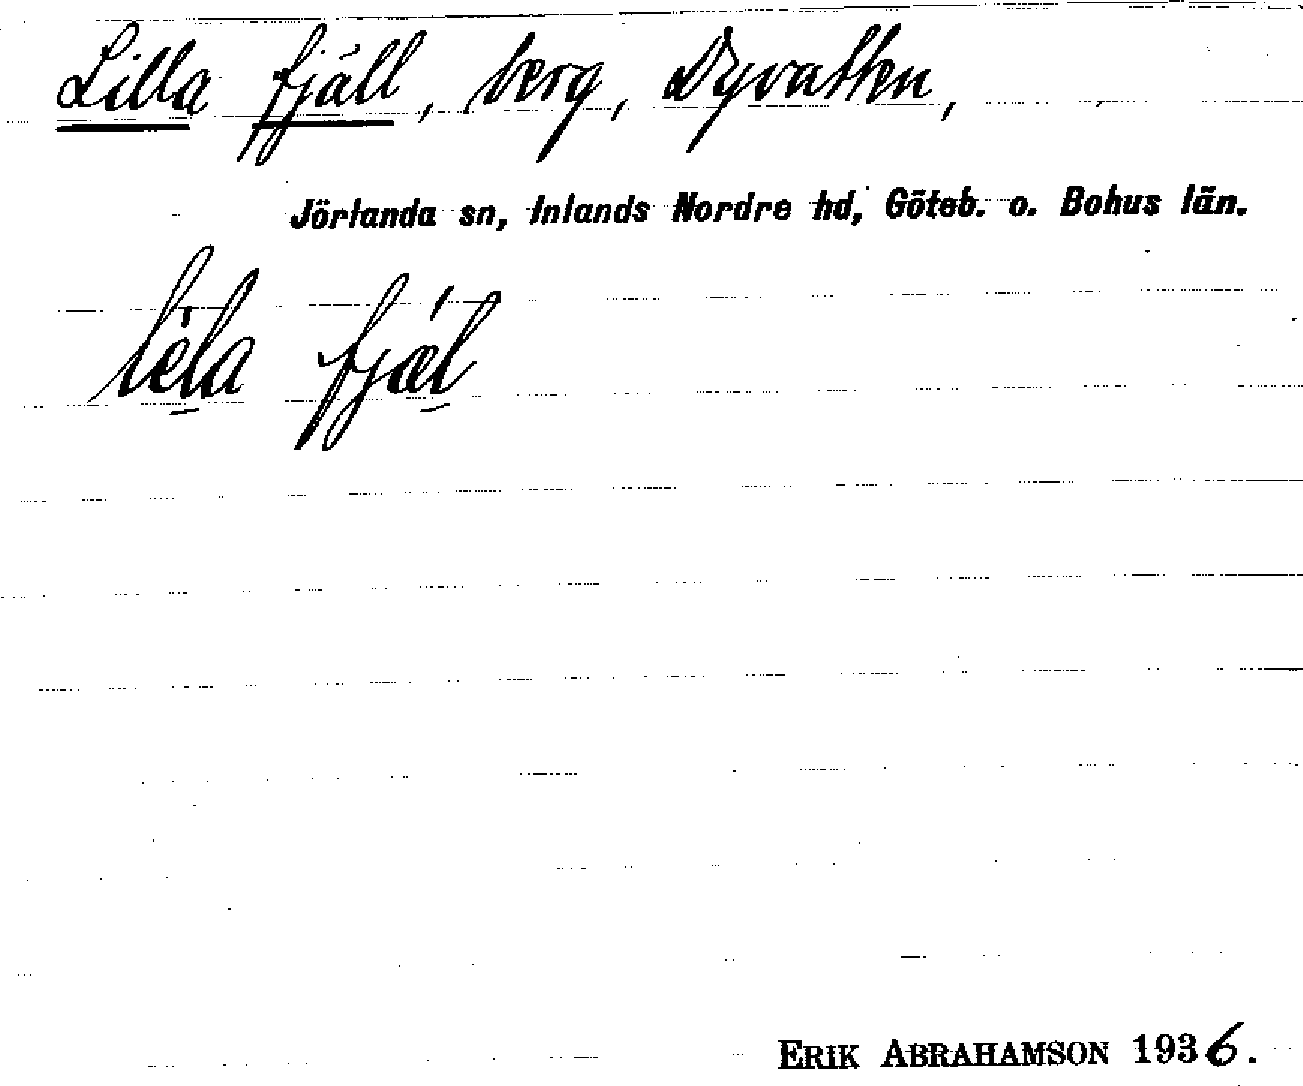 Lilla fjäll, berg, Dyvatten,
Jörlanda sn, Inlands Nordre hd, Göteb. o. Bohus län.
lèla fjæ̀l
ERIK ABRAHAMSON 1936.